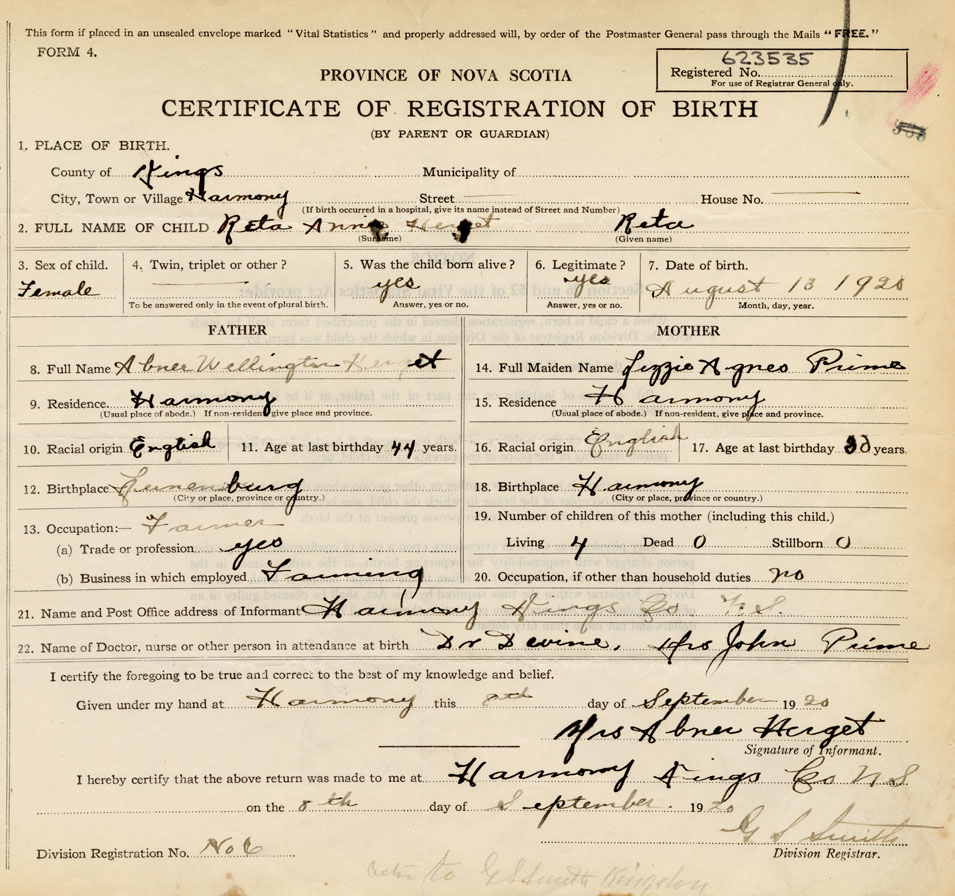 This form if placed in an unsealed envelope marked "Vital Statistics" and properly addressed will, by order of the Postmaster General pass through the Mails "FREE."
FORM 4.
623535
Registered No.
For use of Registrar General only.
PROVINCE OF NOVA SCOTIA
CERTIFICATE OF REGISTRATION OF BIRTH
(BY PARENT OR GUARDIAN)
1. PLACE OF BIRTH.
County of Kings Municipality of
City, Town or Village Harmony Street House No.
(If birth occurred in a hospital, give its name instead of Street and Number)
2. FULL NAME OF CHILD Reta Annie Herget Reta
(Surname) (Given name)
3. Sex of child. 4. Twin, triplet or other? 5. Was the child born alive? 6. Legitimate? 7. Date of birth.
Female yes yes August 13 1920
To be answered only in the event of plural birth. Answer, yes or no. Answer, yes or no. Month, day, year.
FATHER MOTHER
8. Full Name Abner Wellington Herget 14. Full Maiden Name Lizzie Agnes Prime
9. Residence. Harmony 15. Residence Harmony
(Usual place of abode.) If non-resident give place and province. (Usual place of abode.) If non-resident, give place and province.
10. Racial origin English 11. Age at last birthday 44 years. 16. Racial origin English 17. Age at last birthday years.
12. Birthplace Lunenburg 18. Birthplace Harmony
(City or place, province or country.) (City or place, province or country.)
13. Occupation:— Farmer 19. Number of children of this mother (including this child.)
(a) Trade or profession yes Living 4 Dead 0 Stillborn 0
(b) Business in which employed Farming 20. Occupation, if other than household duties no
21. Name and Post Office address of Informant Harmony Kings Co N.S.
22. Name of Doctor, nurse or other person in attendance at birth Dr Devine, Mrs John Prime
I certify the foregoing to be true and correct to the best of my knowledge and belief.
Given under my hand at Harmony this 8th day of September 1920
Mrs Abner Herget
Signature of Informant.
I hereby certify that the above return was made to me at Harmony Kings Co N.S.
on the 8th day of September. 1920
G S Smith
Division Registration No. No 6 Division Registrar.
to G S Smith Kingston